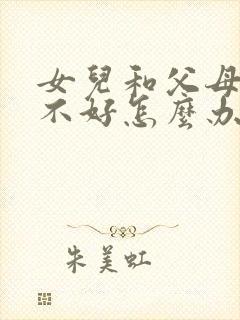 女兒和父母
不好怎麼办
朱美虹